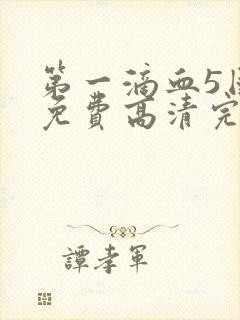 第一滴血5国
免费高清完
譚孝軍